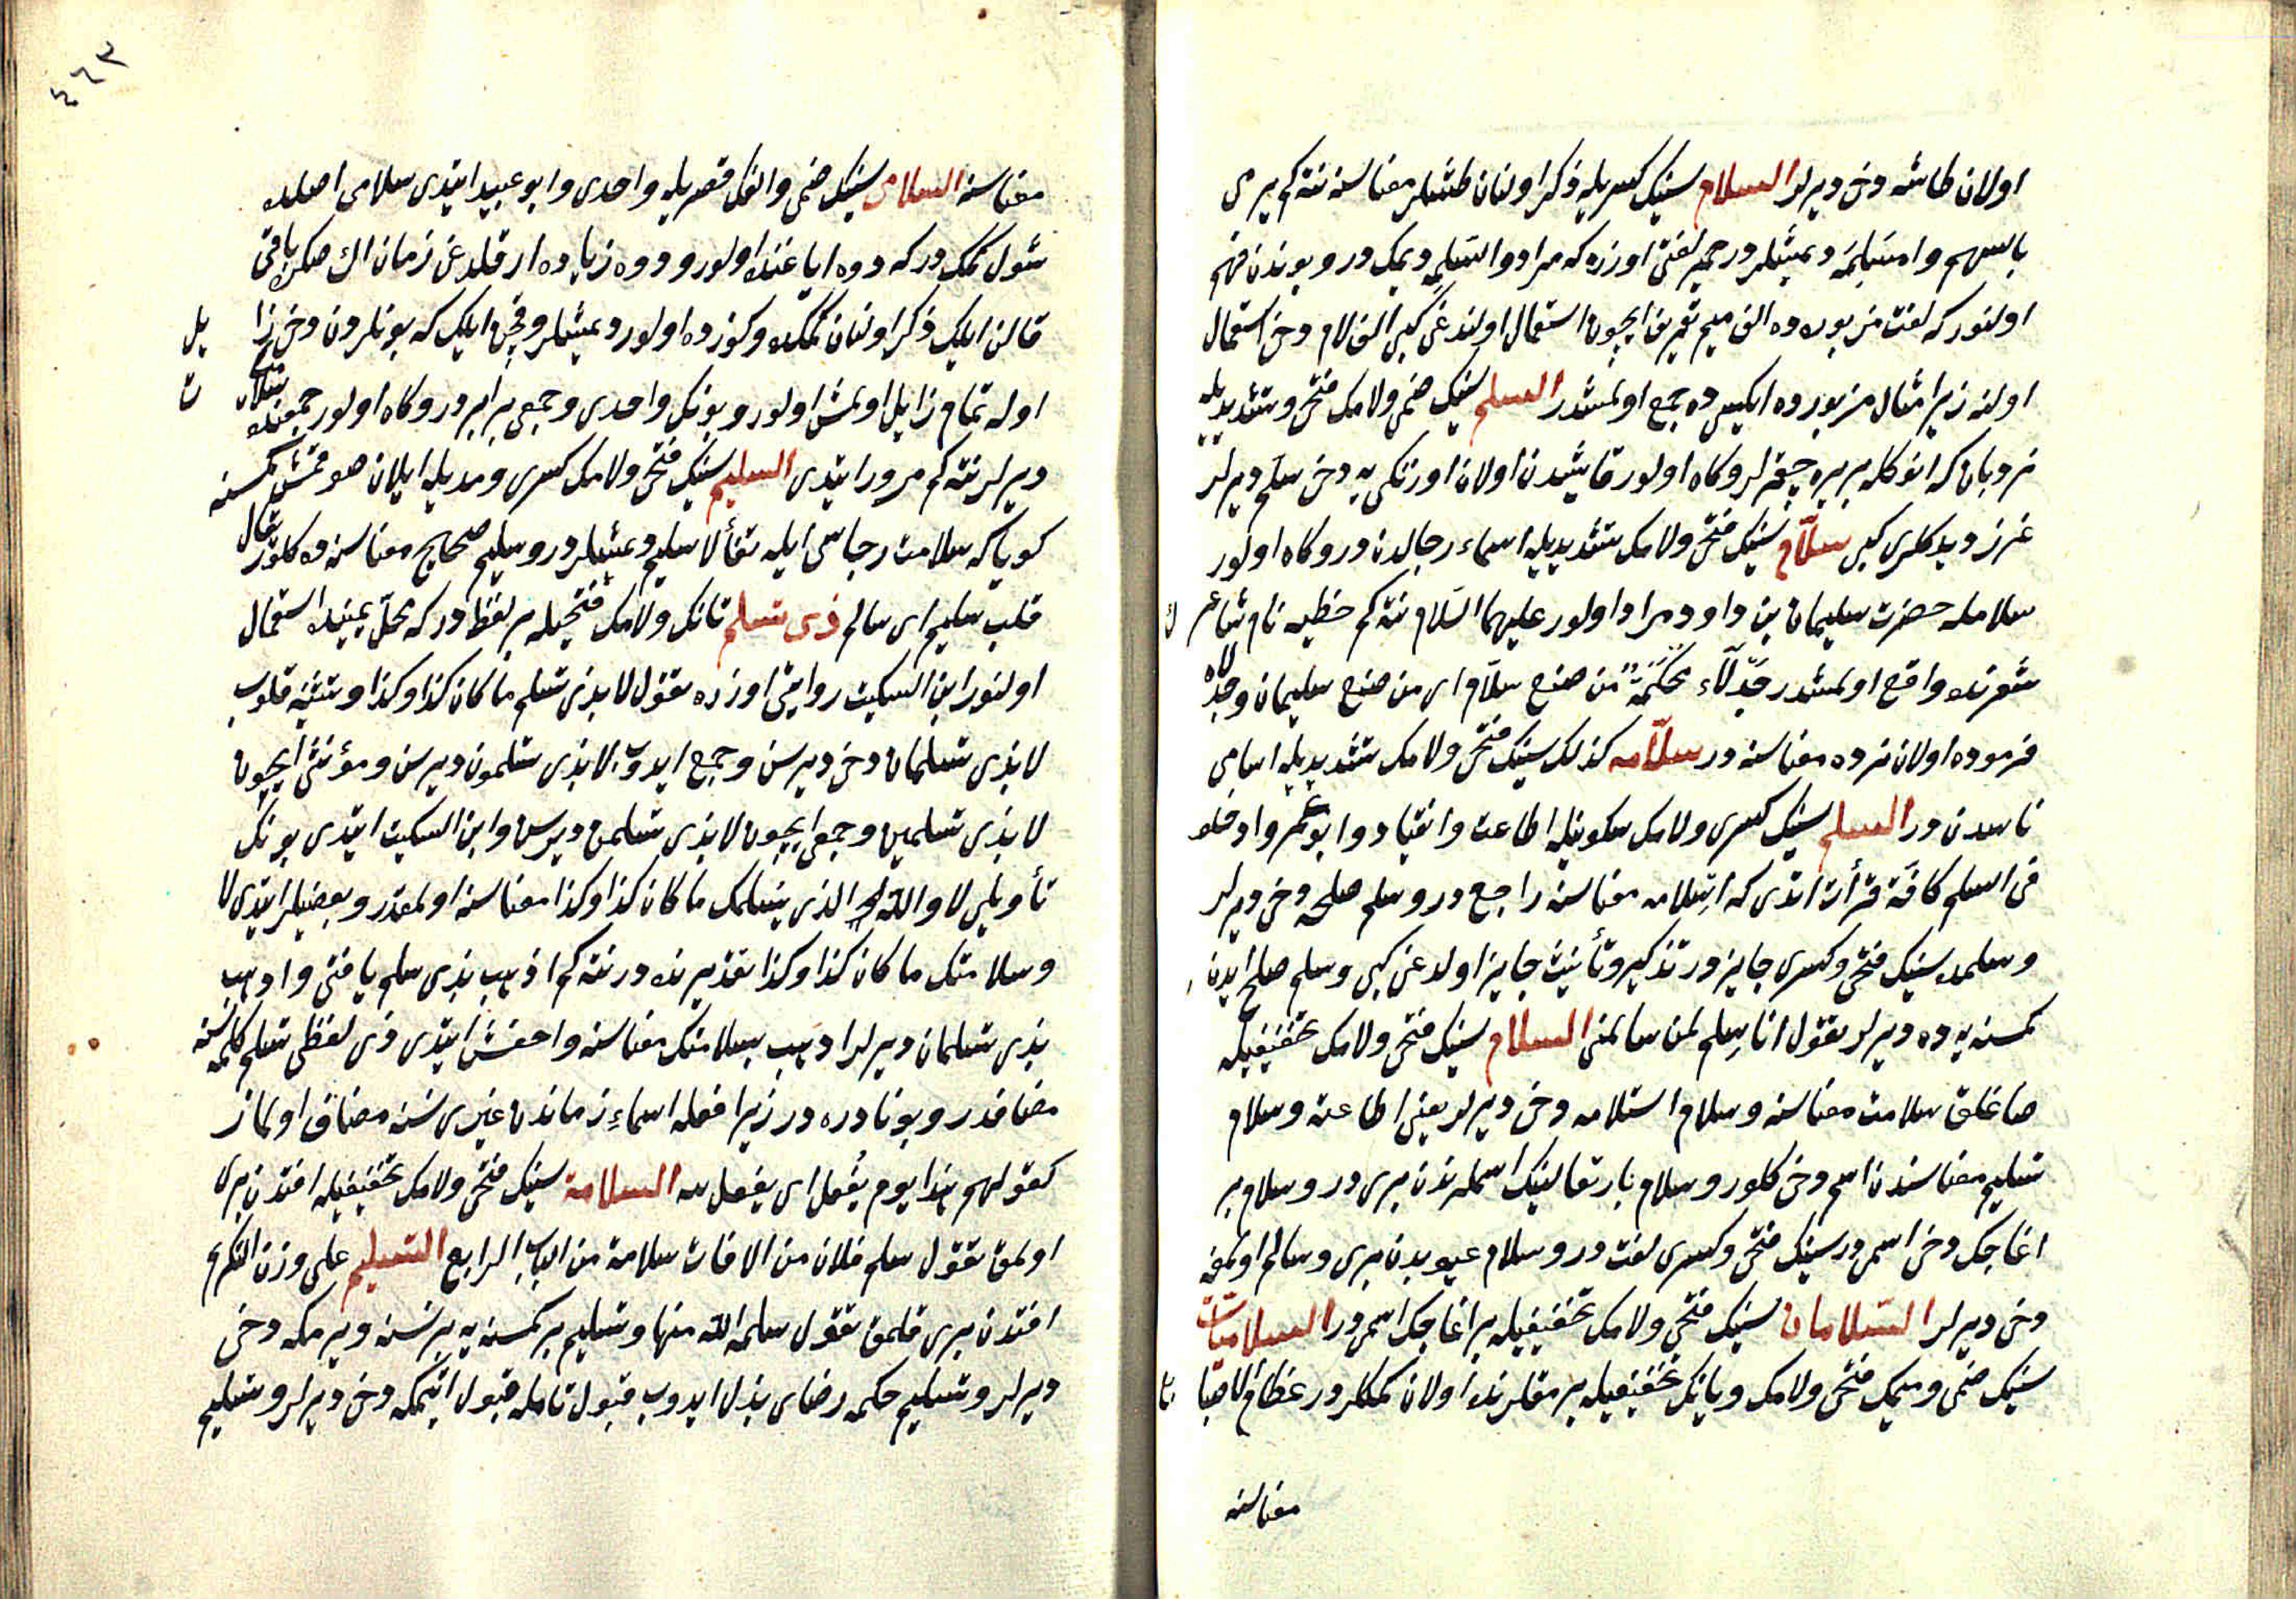 اولان طاشه دخی دیرلر السلام سینك كسریله ذكر اولنان طشلر معناسنه نته كم یرمی
بالسهم وامسلمه دیمشلردر حمیر لغتی اوزره كه مراد والسلمه دیمك در وبوندن فهم
اولنور كه لغت مزبوره ده الف میم تعریف ایچون استعمال اولندغی كبی الف لام دخی استعمال
اولنه زیرا مثال مزبورده ایكیسی ده جمع اولمشدر السلم سینك ضمی ولامك فتحی وتشدیدیله
نردبان كه انوكله بر یره چیقرلر وكاه اولور قایشدن اولان اوزنكی یه دخی سلم دیرلر
غرز دیدكلری كبی سلّام سینك فتحی ولامك تشدیدیله اسماء رجالدن در وكاه اولور
سلامله حضرت سلیمان بن داود مراد اولور علیهما السلام نته كم حطیه نام شاعر
شعرنده واقع اولمشدر جدلاء محكمة من صنع سلام ای من صنع سلیمان وجدلاء
فرموده اولان زره معناسنه در سلّامه كذلك سینك فتحی ولامك تشدیدیله اسامی
ناسدن در السلم سینك كسری ولامك سكونیله اطاعت وانقیاد وابو عمرو ادخلو
فی السلم كافة قرأت اتدی كه اسلامه معناسنه راجع در وسلم صلحه دخی دیرلر
وسلمده سینك فتحی وكسری جایز در تذكیر وتأنیث جایز اولدغی كبی وسلم صلح ایدن
كمسنه یه ده دیرلر یقول انا سلم لمن سالمنی السلام سینك فتحی ولامك تخفیفیله
صاغلق سلامت معناسنه وسلام استلامه دخی دیرلر یعنی اطاعته وسلام
تسلیم معناسندن اسم دخی كلور وسلام باریتعالینك اسملرندن بری در وسلام بر
اغاجك دخی اسمی در سینك فتحی وكسری لغت در وسلام عیوبدن بری وسالم اولمغه
دخی دیرلر السلامان سینك فتحی ولامك تخفیفیله بر اغاجك اسمی در السلامیات
سینك ضمی ومیمك فتحی ولامك ویانك تخفیفیله پرمقلرنده اولان كمكلر در عظام الاصابع
معناسنه
٤٦٣
معناسنه السلامی سینك ضمی والفك قصریله واحدی وابو عبید ایتدی سلامی اصلده
شول كمك در كه دوه ایاغنده اولور ودوه زیاده ارقلدغی زمان اك صكره باقی
قالن ایلك ذكر اولنان كمكده وكوزده اولور دیمشلر وقچن ایلك كه بونلردن دخی زایل
اوله تمام زایل اولمش اولور وبونك واحدی وجمعی برابر در وكاه اولور جمعنده سلامیات
دیرلر نته كم مرور ایتدی السلیم سینك فتحی ولامك كسری ومدیله ایلان صوقمش كمسنه
كویا كه سلامت رجاسی ایله تفألا سلیم دیمشلر در وسلیم صحیح معناسنه ده كلور یقال
قلب سلیم ای سالم ذی تسلم تانك ولامك فتحیله بر لفظ در كه محل یمینده استعمال
اولنور ابن السكیت روایتی اوزره یقول لا بذی تسلم ما كان كذا وكذا وتثنیه قلوب
لا بذی تسلمان دخی دیرسن وجمع ایدوب لا بذی تسلمون دیرسن ومؤنثی ایچون
لا بذی تسلمین وجمعی ایچون لا بذی تسلمن دیرسن وابن السكیت ایتدی بونك
تأویلی لا والله الذی یسلمك ما كان كذا وكذا معناسنه اولمقدر وبعضیلر ایتدی لا
وسلامتك ما كان كذا وكذا تقدیرنده در نته كم اذهب بذی تسلم یا فتی واذهب
بذی تسلمان دیرلر اذهب بسلامتك معناسنه واخفش ایتدی ذی لفظی تسلم كلمه سنه
مضافدر وبو نادره در زیرا فعله اسماء زماندن غیری نسنه مضاف اولماز
كقولهم هذا یوم یفعل ای یفعل فیه السلامة سینك فتحی ولامك تخفیفیله افتدن بری
اولمق تقول سلم فلان من الافات سلامة من الباب الرابع التسلیم علی وزن التكریم
افتدن بری قلمق تقول سلمه الله منها وتسلیم بر كمسنه یه بر نسنه ویرمكه دخی
دیرلر وتسلیم حكمه رضای بذل ایدوب قبول تامله قبول اتمكه دخی دیرلر وتسلیم